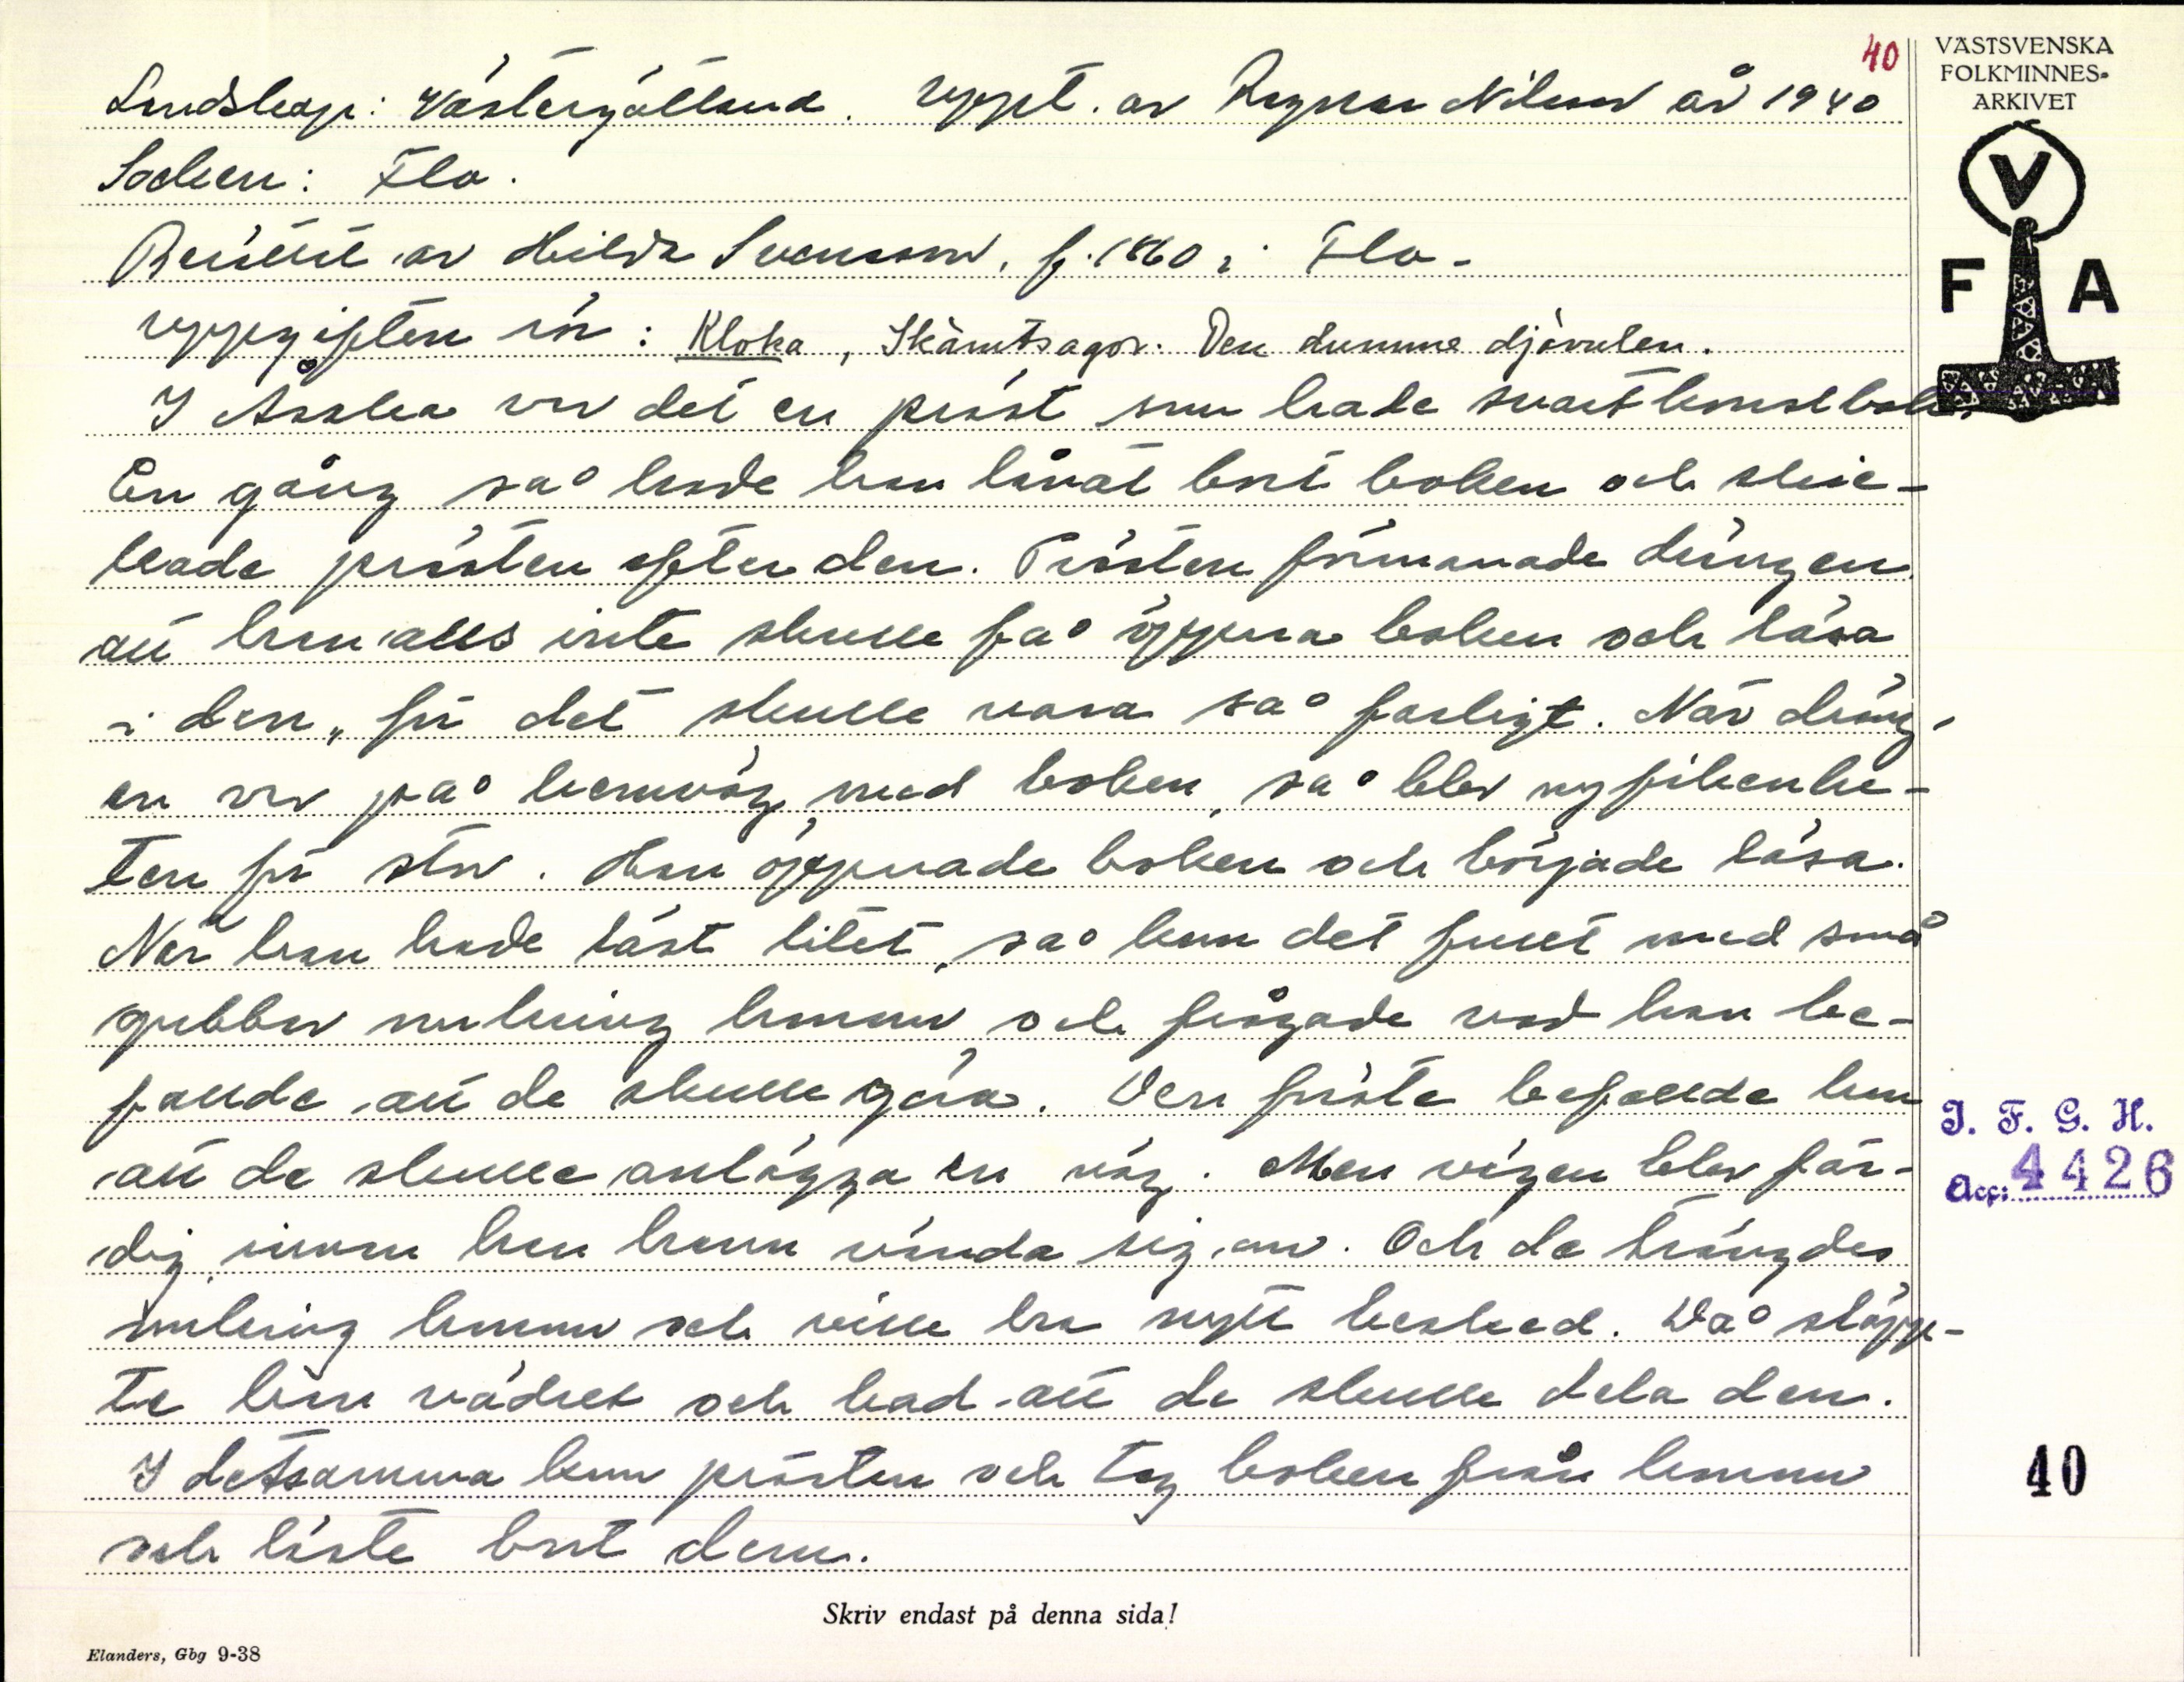 40
VÄSTSVENSKA
FOLKMINNES-
ARKIVET
V
F A
Landskap: Västergötland. Uppt. av Ragnar Nilsson år 1940
Socken: Flo.
Berättat av Hilda Svensson, f. 1860 i Flo.
Uppgiften rör: Kloka, Skämtsagor. Den dumme djävulen.
I Åsaka var det en präst som hade svartkonstbok.
En gång så hade han lånat bort boken och skic-
kade prästen efter den. Prästen förmanade drängen
att han alls inte skulle få öppna boken och läsa
i den, för det skulle vara så farligt. När dräng-
en var på hemväg med boken, så blev nyfikenhe-
ten för stor. Han öppnade boken och började läsa.
När han hade läst litet, så kom det fullt med små
gubbar omkring honom och frågade vad han be-
fallde att de skulle göra. Den första befallde han
att de skulle anlägga en väg. Men vägen blev fär-
dig, innan han hann vända sig om. Och de trängdes
omkring honom och ville ha nytt besked. Då släpp-
te han vädret och bad att de skulle dela den.
I detsamma kom prästen och tog boken från honom
och läste bort dem.
J. F. G. H.
Acc: 4426
40
Skriv endast på denna sida!
Elanders, Gbg 9-38